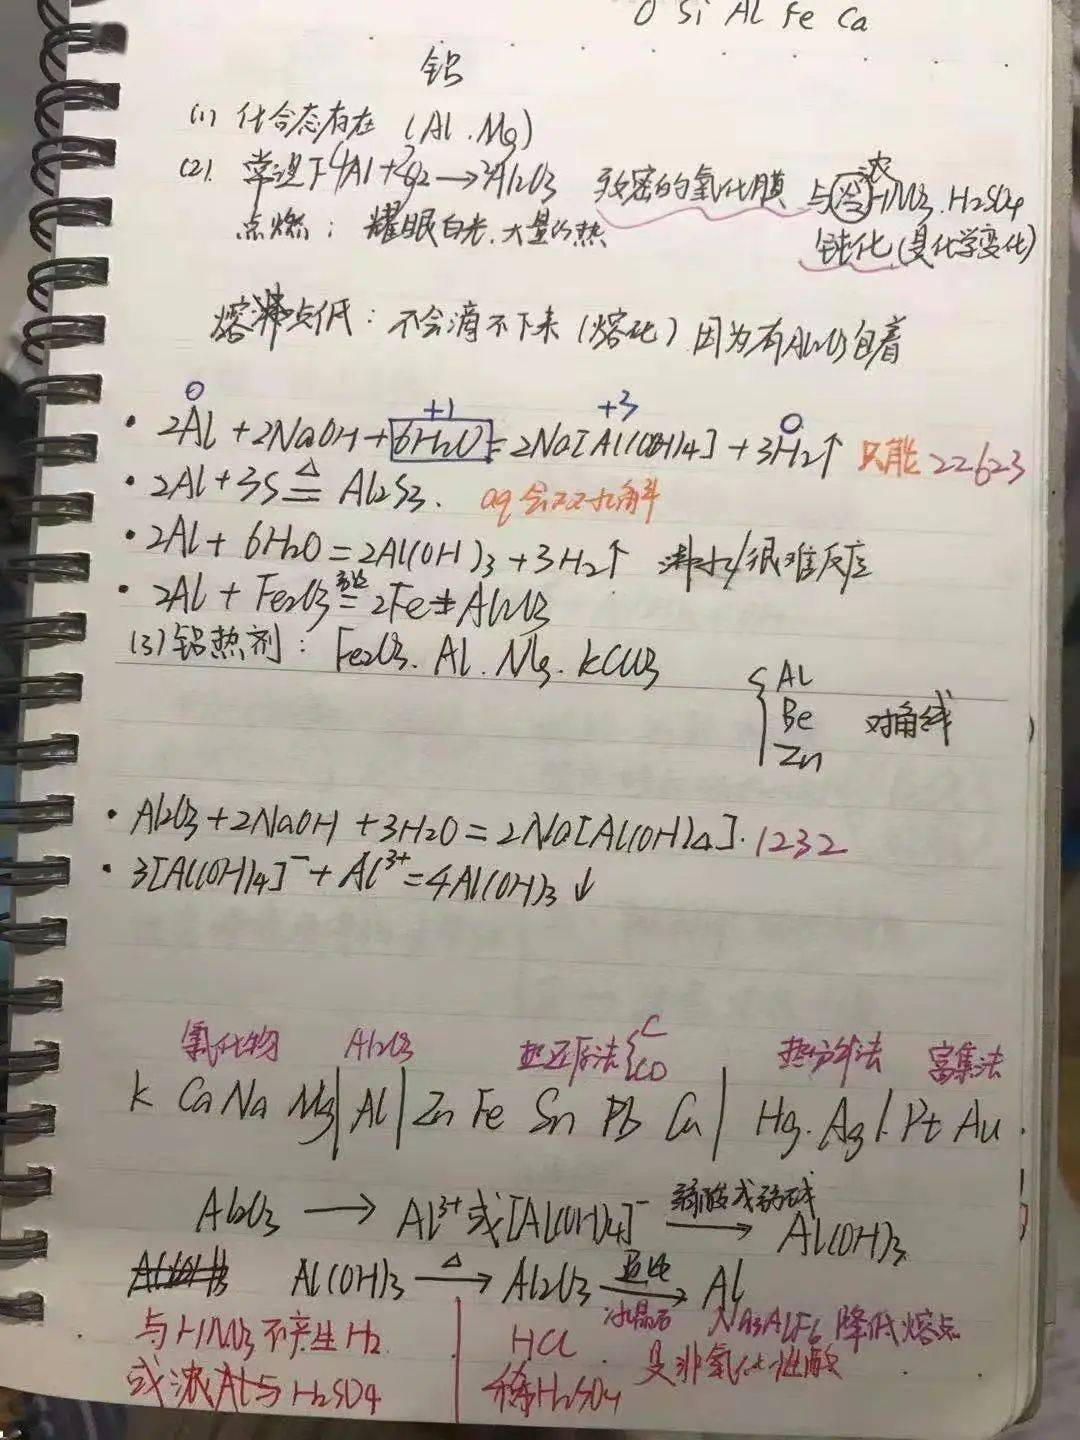 O Si Al Fe Ca
铝
(1) 化合态存在 (Al.Mg)
(2). 常温下4Al+3O2→2Al2O3 致密的氧化膜 与冷浓HNO3.H2SO4
点燃：耀眼白光.大量的热 钝化(是化学变化)
熔沸点低：不会滴下来(熔化)因为有Al2O3包着
0 +1 +3 0
· 2Al+2NaOH+6H2O=2Na[Al(OH)4]+3H2↑ 只能22623
· 2Al+3S≜Al2S3. aq会双水解
· 2Al+6H2O=2Al(OH)3+3H2↑ 沸水/很难反应
· 2Al+Fe2O3 高温= 2Fe+Al2O3
(3)铝热剂：Fe2O3.Al.Mg.KClO3
{Al
Be 对角线
Zn
· Al2O3+2NaOH+3H2O=2Na[Al(OH)4].1232
· 3[Al(OH)4]⁻+Al³⁺=4Al(OH)3↓
氯化物 Al2O3 热还原法{C CO 热分解法 富集法
K Ca Na Mg|Al|Zn Fe Sn Pb Cu|Hg.Ag|.Pt Au.
Al2O3 → Al³⁺或[Al(OH)4]⁻ 弱酸或弱碱→ Al(OH)3
Al(OH)3 △→ Al2O3 通电→ Al
冰晶石 Na3AlF6 降低熔点
与HNO3不产生H2 | HCl 是非氧化性酸
或浓Al与H2SO4 | 稀H2SO4